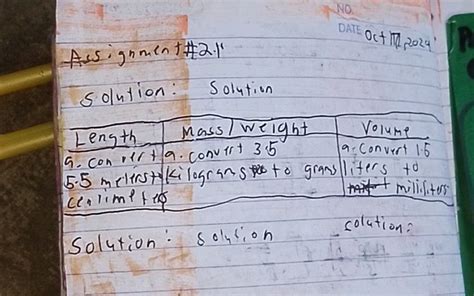 NO.
DATE Oct 17, 2024
Assignment #2.1
Solution: Solution
Length Mass/Weight Volume
a. convert a. convert 3.5 a. convert 1.5
5.5 meters to kilograms to grams liters to
centimeters milliliters
Solution: Solution Solution: